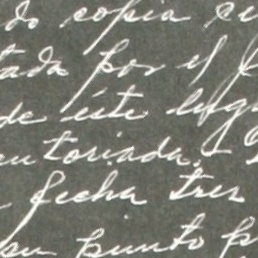 do copia cu
tada por el
de éste lega
cutoriada.
fecha tres
su punto p